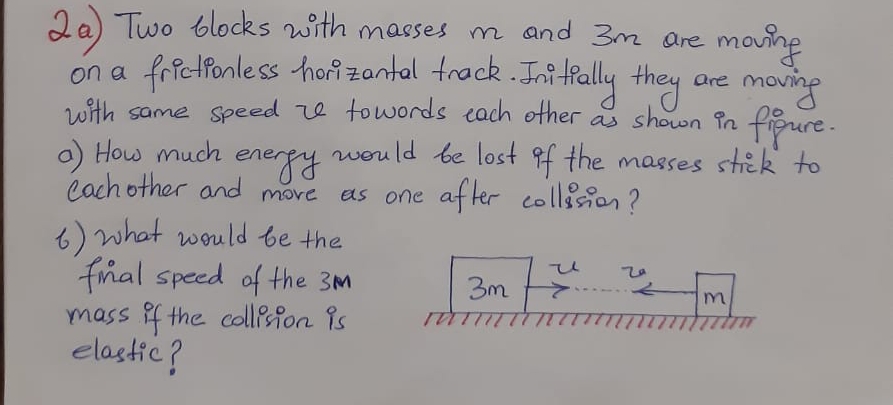 2a) Two blocks with masses m and 3m are moving
on a frictionless horizantal track. Initially they are moving
with same speed v towords each other as shown in figure.
a) How much energy would be lost if the masses stick to
each other and move as one after collision?
b) what would be the
final speed of the 3M
mass if the collision is
elastic?
3m v v m